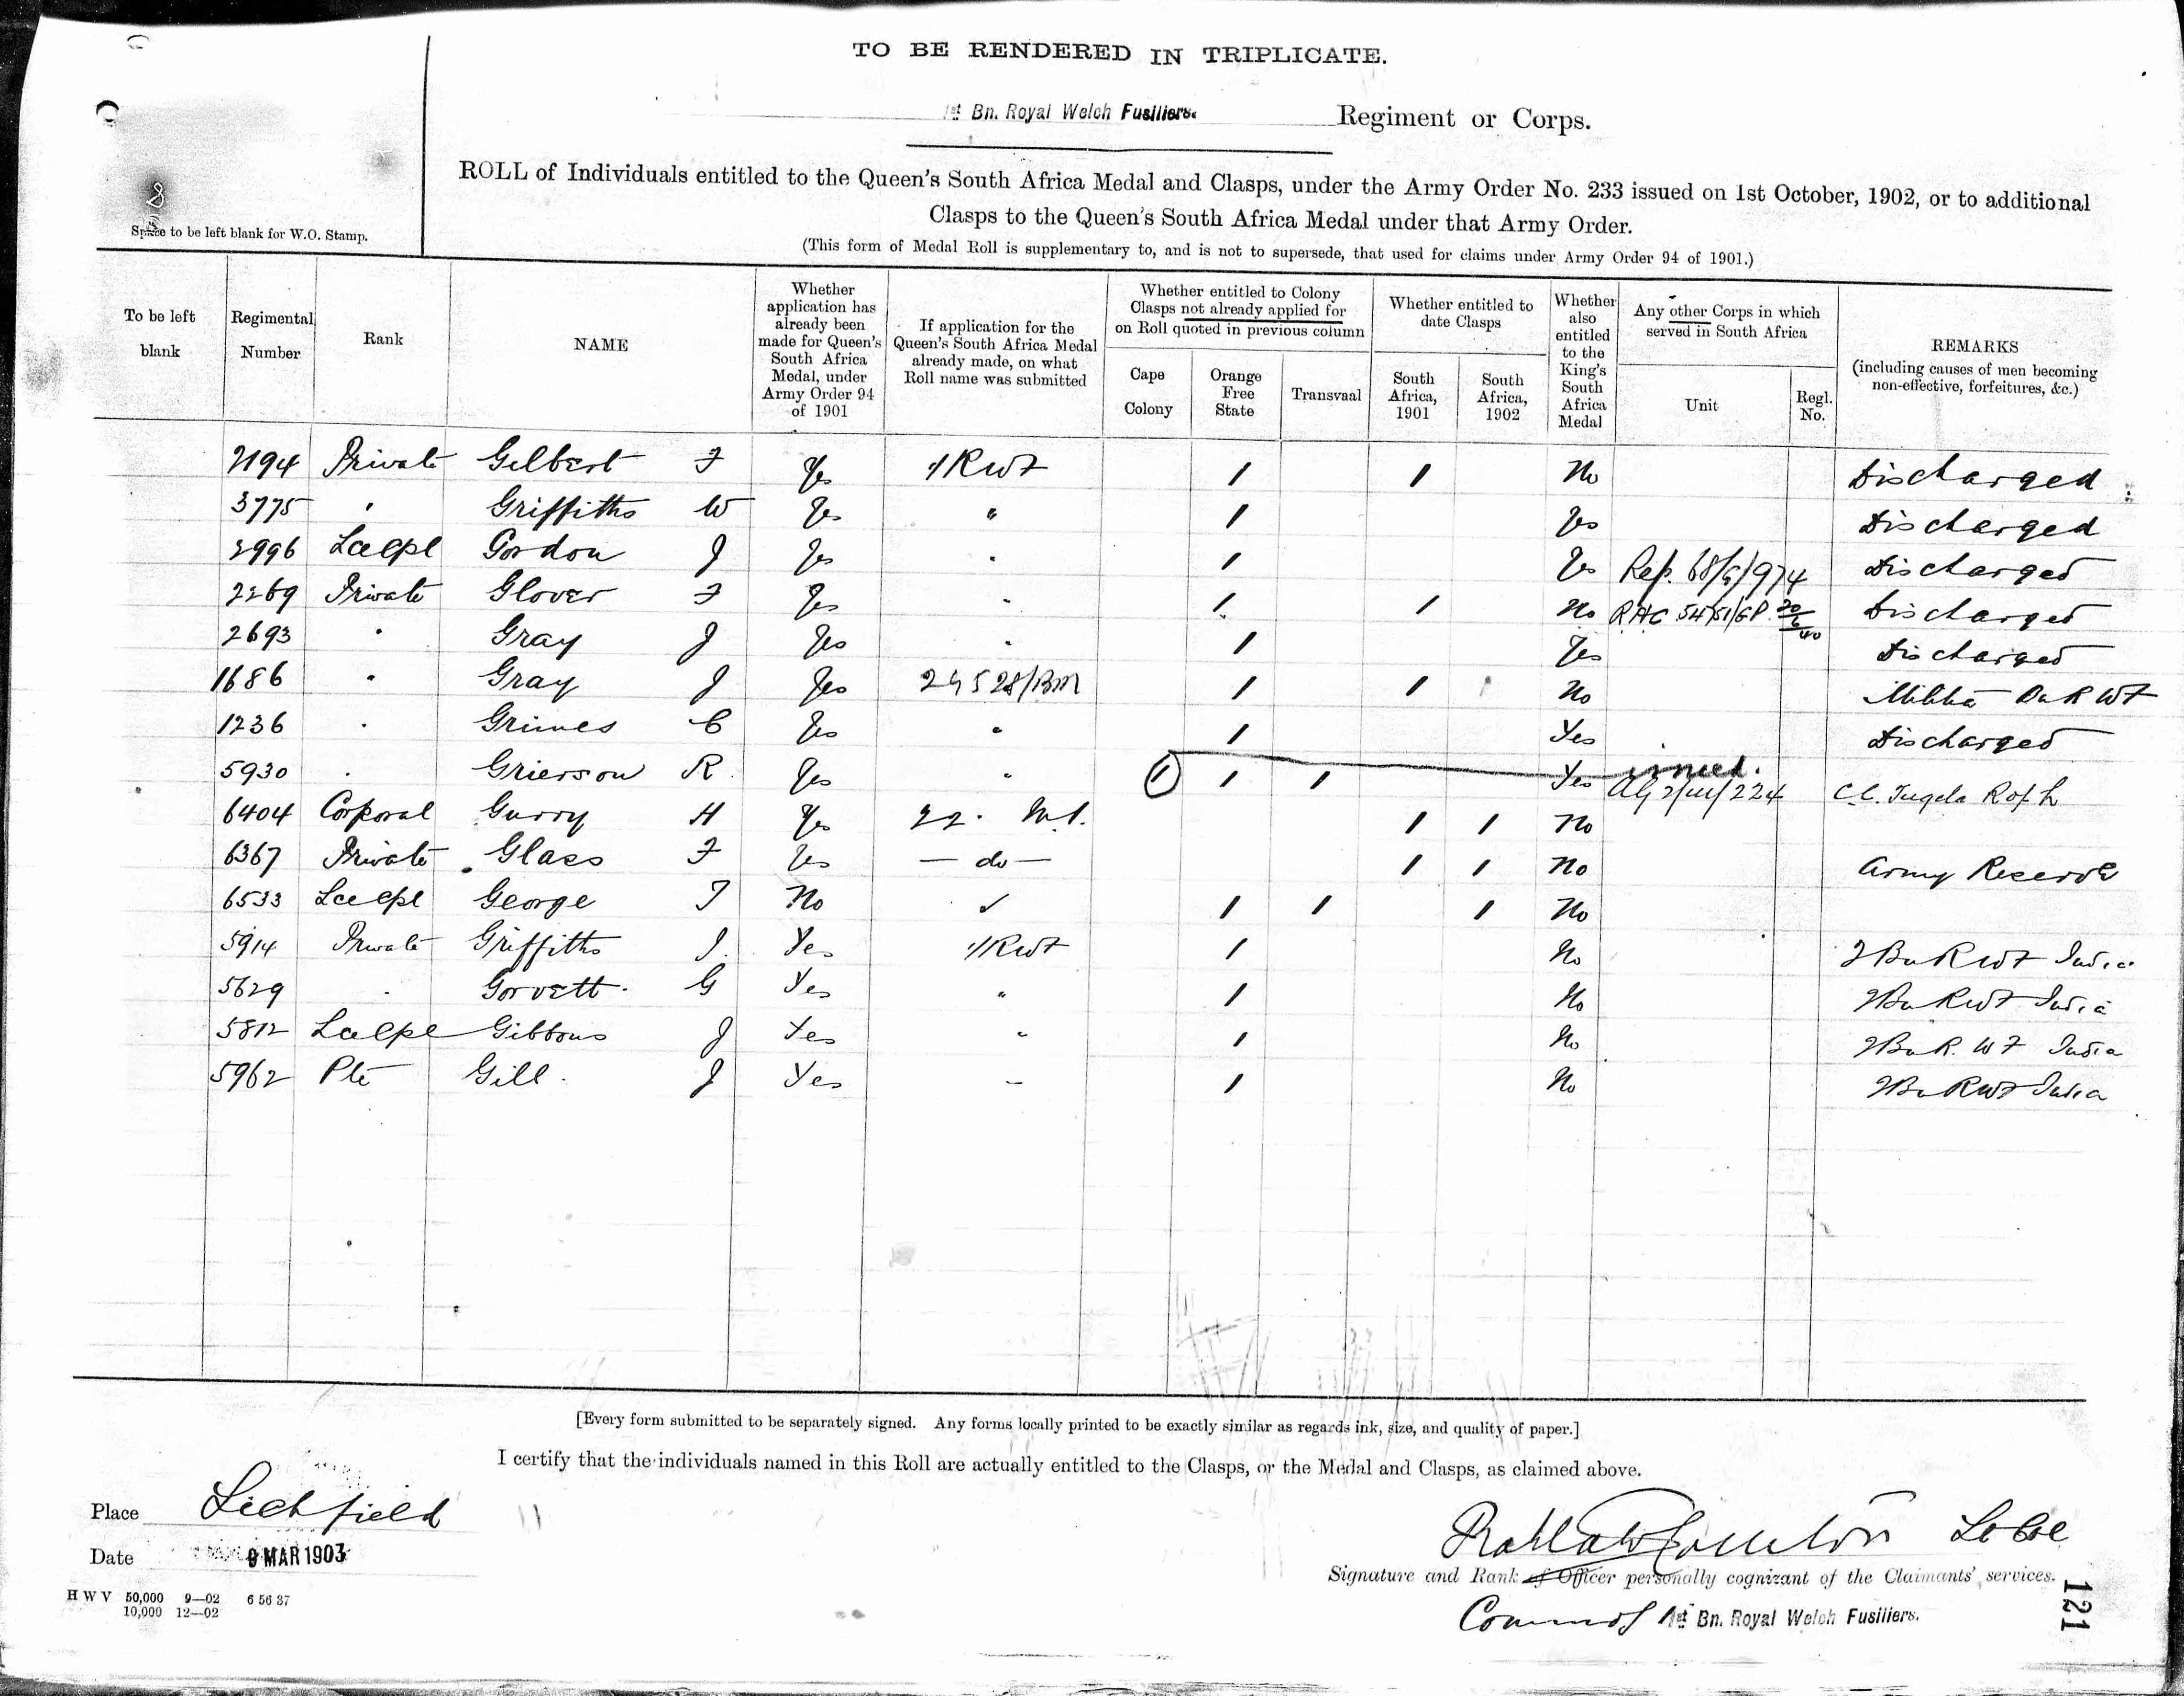 TO BE RENDERED IN TRIPLICATE.
1st Bn. Royal Welch Fusiliers. Regiment or Corps.
ROLL of Individuals entitled to the Queen's South Africa Medal and Clasps, under the Army Order No. 233 issued on 1st October, 1902, or to additional
Clasps to the Queen's South Africa Medal under that Army Order.
(This form of Medal Roll is supplementary to, and is not to supersede, that used for claims under Army Order 94 of 1901.)
Space to be left blank for W.O. Stamp.
To be left blank
Regimental Number
Rank
NAME
Whether application has already been made for Queen's South Africa Medal, under Army Order 94 of 1901
If application for the Queen's South Africa Medal already made, on what Roll name was submitted
Whether entitled to Colony Clasps not already applied for on Roll quoted in previous column
Cape Colony
Orange Free State
Transvaal
Whether entitled to date Clasps
South Africa, 1901
South Africa, 1902
Whether also entitled to the King's South Africa Medal
Any other Corps in which served in South Africa
Unit
Regl. No.
REMARKS
(including causes of men becoming non-effective, forfeitures, &c.)
Private Gilbert F Yes 1/RWF 1 1 No Discharged
3775 " Griffiths W Yes " 1 Yes Discharged
2996 Lce Cpl Gordon J Yes " 1 Yes Rep. 68/6/974 Discharged
2269 Private Glover F Yes " 1 1 No Discharged
2693 " Gray J Yes " 1 Yes Discharged
1686 " Gray J Yes 1 1 No Militia RWF
1236 " Grimes C Yes " 1 Yes Discharged
5930 " Grierson R Yes " 1 1 1 Yes issued. C.C. Tugela R of L
6404 Corporal Gurry H Yes 22. M.I. 1 1 No
6367 Private Glass F Yes — do — 1 1 No Army Reserve
6533 Lce Cpl George T No ✓ 1 1 1 No
5914 Private Griffiths J. Yes 1/RWF 1 No 2 Bn RWF India
5629 " Gorvett. G Yes " 1 No 2 Bn RWF India
5812 Lce Cpl Gibbons J Yes " 1 No 2 Bn R. W F India
5962 Pte Gill. J Yes " 1 No 2 Bn RWF India
[Every form submitted to be separately signed. Any forms locally printed to be exactly similar as regards ink, size, and quality of paper.]
I certify that the individuals named in this Roll are actually entitled to the Clasps, or the Medal and Clasps, as claimed above.
Place Lichfield
Date 9 MAR 1903
Signature and Rank of Officer personally cognizant of the Claimants' services.
1st Bn. Royal Welch Fusiliers.
H W V 50,000 9—02 6 56 37
10,000 12—02
121